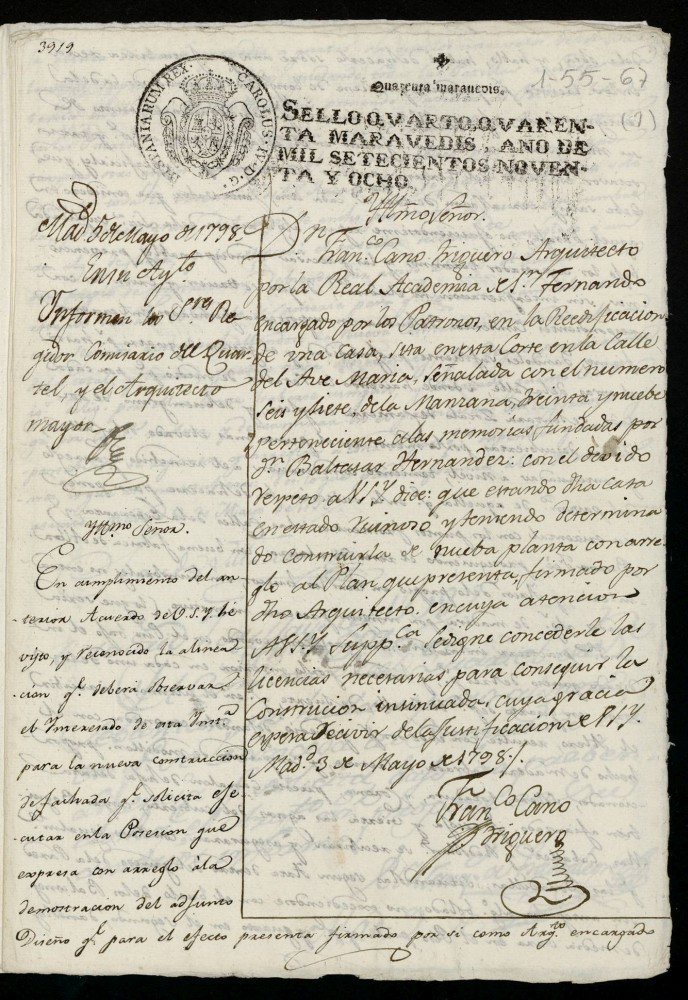 3919
HISPANIARUM REX. CAROLUS. IV. D. G.
1-55-67
(1)
Quarenta maravedis.
SELLO QVARTO, QVAREN-
TA MARAVEDIS, AÑO DE
MIL SETECIENTOS NOVEN-
TA Y OCHO.
Yltmo. Señor.
Dn. Fran.co Cano Triguero Arquitecto
por la Real Academia de Sn. Fernando
encargado por los Patronos, en la Reedificacion
de una Casa, sita en esta Corte en la Calle
del Ave Maria, señalada con el numero
seis y siete, de la Manzana, treinta y nuebe
perteneciente a las memorias fundadas por
Dn. Baltasar Hernandez: con el devido
respeto a VSY. dice: que estando dha casa
en estado ruinoso y teniendo determina
do construirla de nueba planta con arre-
glo al Plan que presenta, firmado por
dho Arquitecto. en cuya atencion
A VSY. Supp.ca se digne concederle las
licencias necesarias para conseguir la
Construcion insinuada, cuya gracia
espera recivir de la Justificacion de VSY.
Mad.d 3 de Mayo de 1798.
Fran.co Cano
Triguero
Mad.d 5 de Mayo de 1798.
En su Ay.to
Informen los S.res Re
gidor Comisario del Quar-
tel, y el Arquitecto
mayor
Yltmo Señor.
En cumplimiento del an-
terior Acuerdo de V.S.Y. he
visto, y reconocido la alinea
cion q.e deberá observar
el Interesado de esta Inst.a
para la nueva construccion
de fachada q.e solicita eje
cutar en la Posesion que
expresa con arreglo à la
demostracion del adjunto
Diseño q.e para el efecto presenta firmado por si como Arq.to encargado